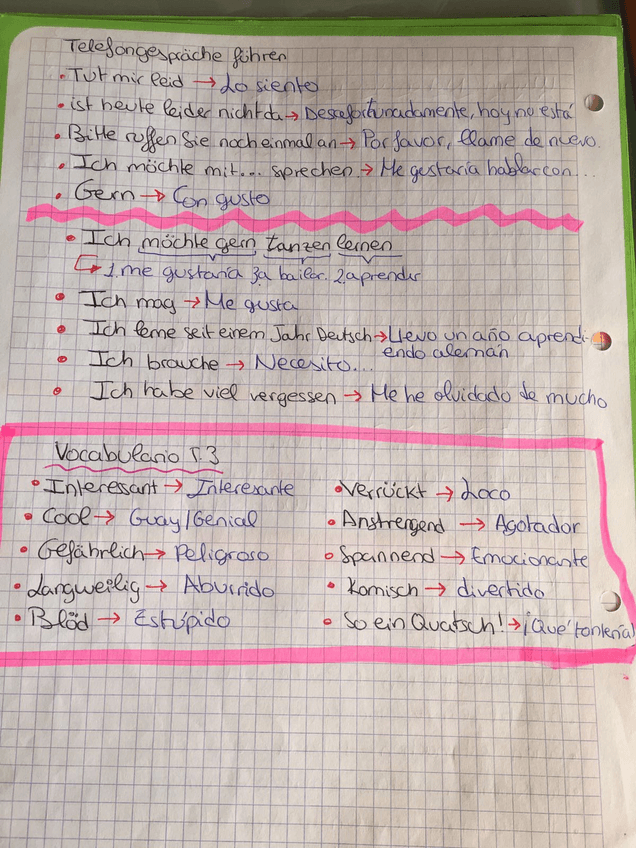 Telefongespräche führen
• Tut mir leid → Lo siento
• ist heute leider nicht da → Desafortunadamente, hoy no está
• Bitte ruffen Sie noch einmal an → Por favor, llame de nuevo.
• Ich möchte mit... sprechen. → Me gustaría hablar con...
• Gern → Con gusto
• Ich möchte gern tanzen lernen
↳ 1. me gustaría 3. a bailar. 2. aprender
• Ich mag → Me gusta
• Ich lerne seit einem Jahr Deutsch → Llevo un año aprendi-
endo alemán
• Ich brauche → Necesito...
• Ich habe viel vergessen → Me he olvidado de mucho
Vocabulario T.3
• Interessant → Interesante
• Cool → Guay/Genial
• Gefährlich → Peligroso
• Langweilig → Aburrido
• Blöd → Estúpido
• Verrückt → Loco
• Anstrengend → Agotador
• Spannend → Emocionante
• Komisch → divertido
• So ein Quatsch! → ¡Qué tontería!